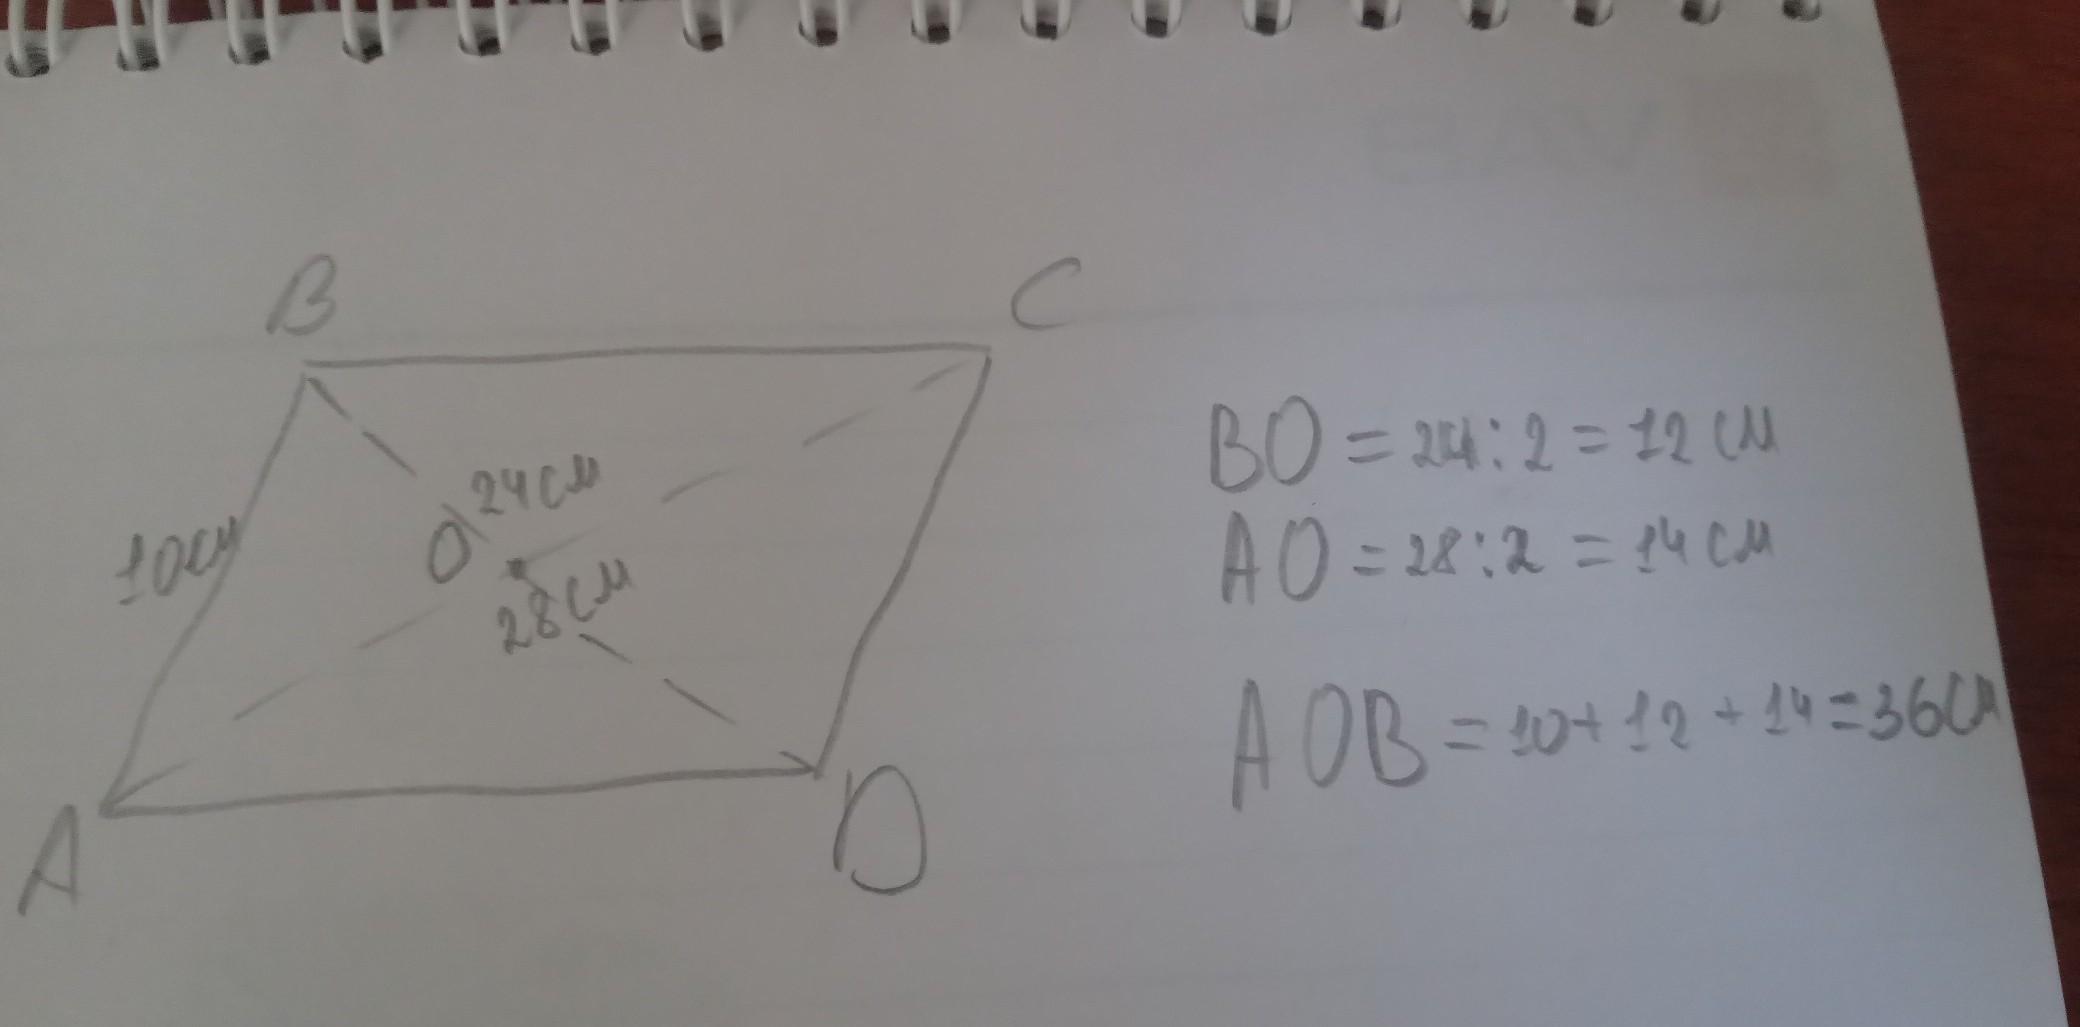 B
C
10см
O
24см
28см
A
D
BO = 24 : 2 = 12 см
AO = 28 : 2 = 14 см
AOB = 10 + 12 + 14 = 36см